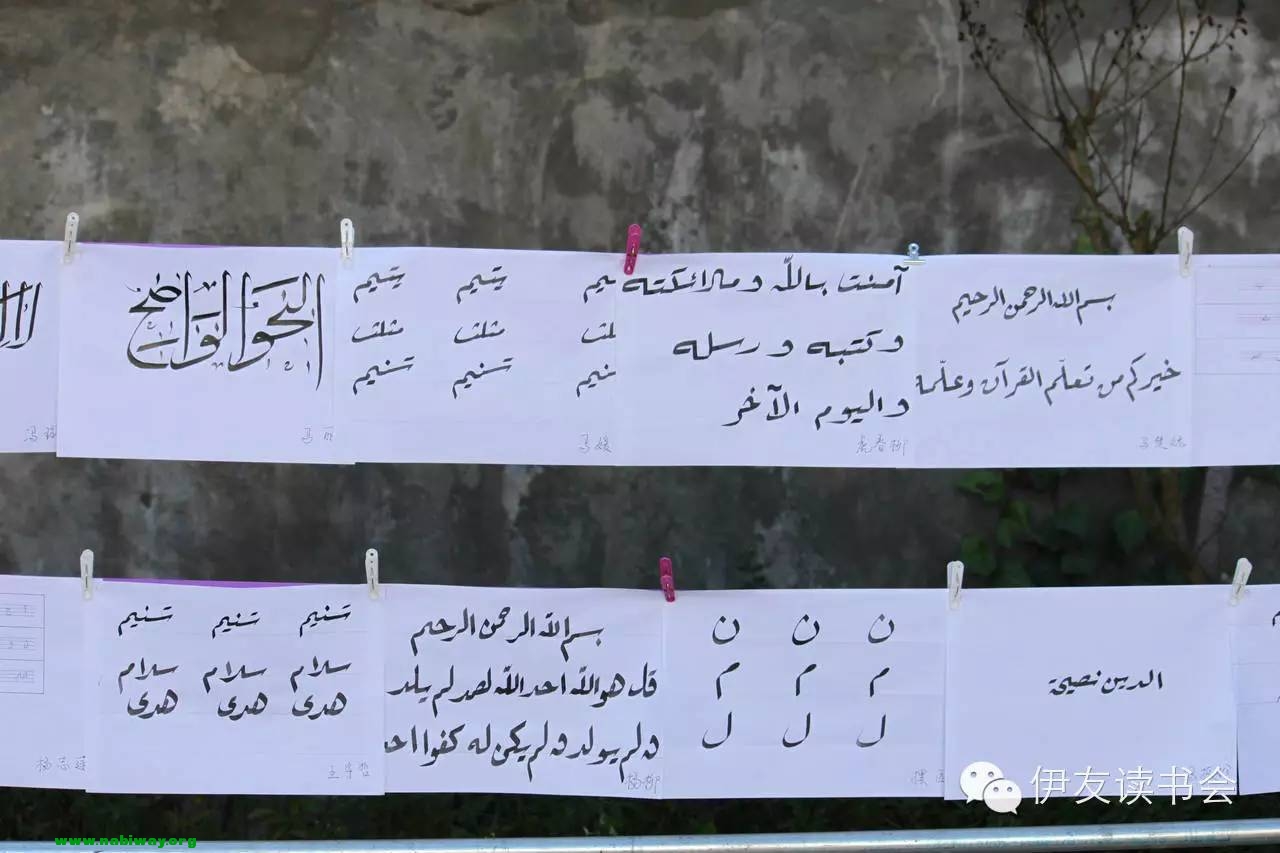 النحو الواضح
يتيم يتيم يتيم
مثلث مثلث مثلث
تسنيم تسنيم تسنيم
马媛
آمنت باللّه وملائكته
وكتبه ورسله
واليوم الآخر
虎春柳
بسم الله الرحمن الرحيم
خيركم من تعلّم القرآن وعلّمه
تسنيم تسنيم تسنيم
سلام سلام سلام
هدى هدى هدى
王学哲
بسم اللّه الرحمن الرحيم
قل هو اللّه احد اللّه لصد لم يلد
ولم يولد ولم يكن له كفوا احد
杨柳
ن ن ن
م م م
ل ل ل
الدين نصيحة
伊友读书会
www.nabiway.org